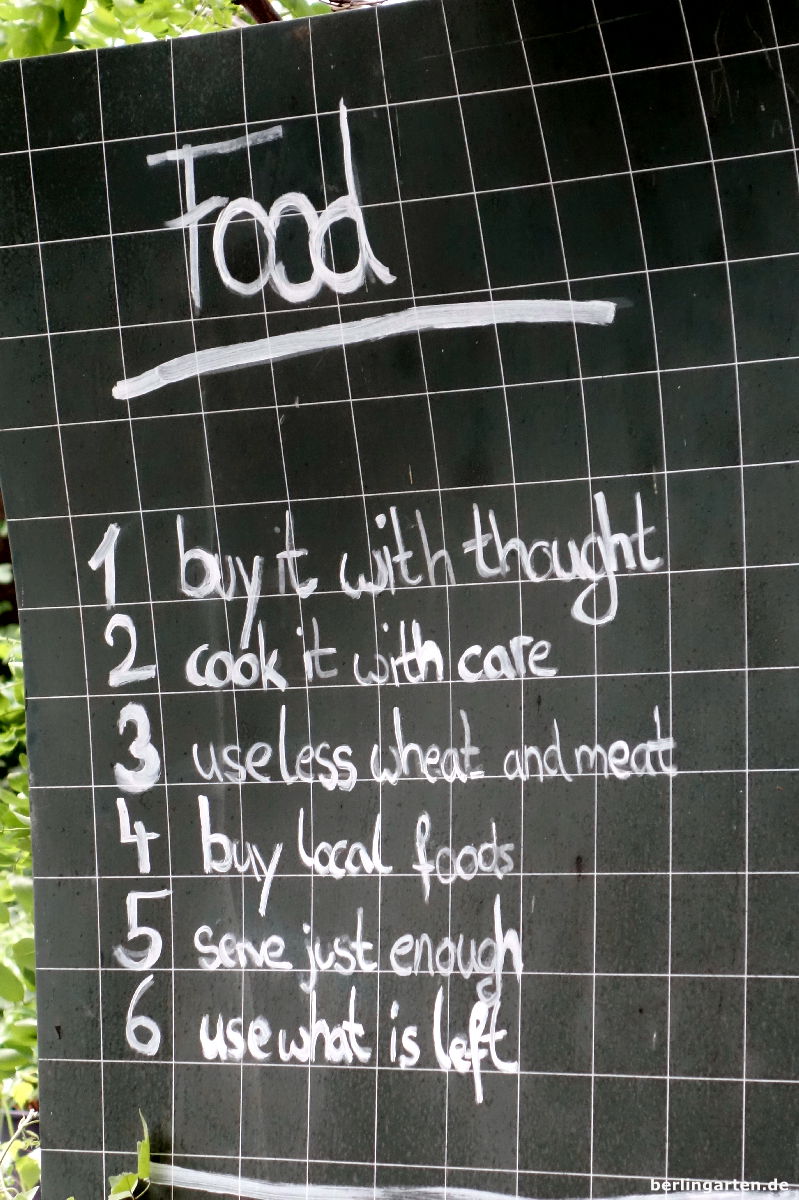 Food
1 buy it with thought
2 cook it with care
3 use less wheat and meat
4 buy local foods
5 serve just enough
6 use what is left
berlingarten.de